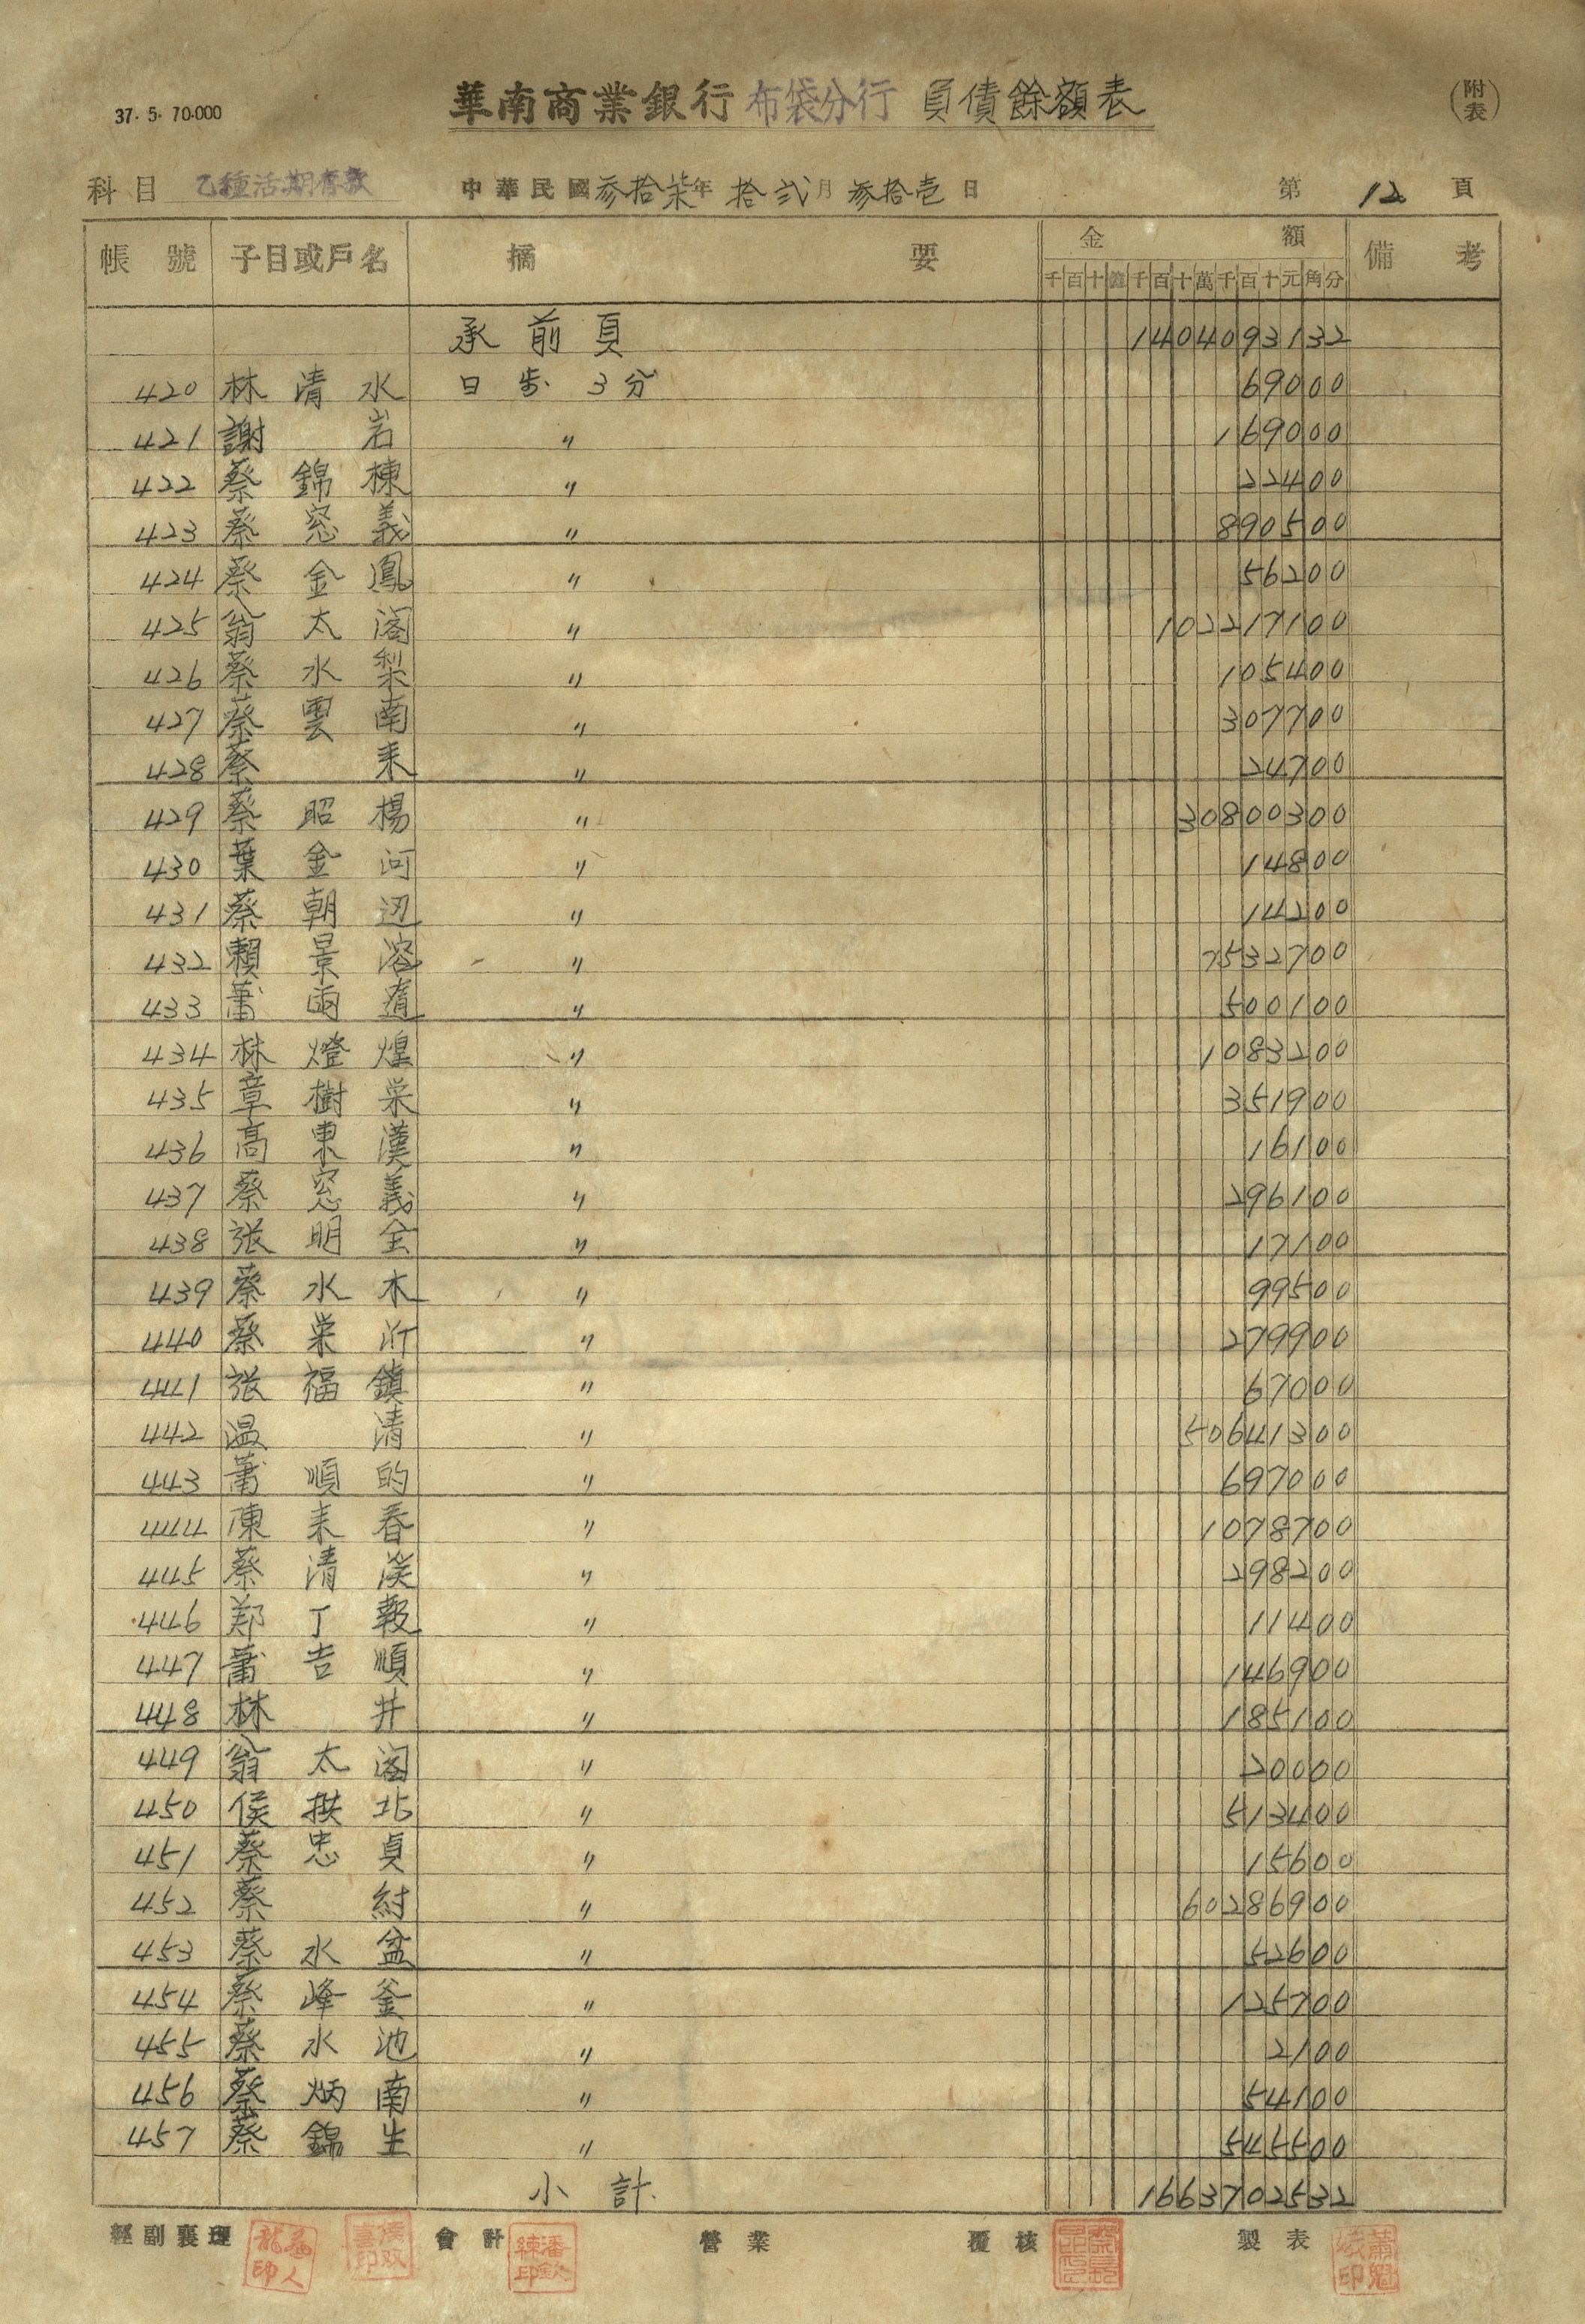 37. 5. 70.000
華南商業銀行 布袋分行 負債餘額表
(附表)
科目 乙種活期存款 中華民國參拾柒年拾弍月參拾壱日 第12頁
帳號 子目或戶名 摘要 金額 備考
千百十億千百十萬千百十元角分
承前頁 1404093132
420 林清水 日步 3分 69000
421 謝岩 〃 169000
422 蔡錦棟 〃 22400
423 蔡窓義 〃 890500
424 蔡金鳳 〃 56200
425 翁太閣 〃 102217100
426 蔡水梨 〃 105400
427 蔡雲南 〃 307700
428 蔡耒 〃 24700
429 蔡昭楊 〃 30800300
430 葉金河 〃 14800
431 蔡朝辺 〃 14200
432 賴景溶 〃 7532700
433 蕭雨 〃 500100
434 林燈煌 〃 1083200
435 章樹栄 〃 351900
436 高東漢 〃 16100
437 蔡窓義 〃 296100
438 張明全 〃 17100
439 蔡水木 〃 99500
440 蔡栄沂 〃 279900
441 張福鎮 〃 67000
442 温清 〃 50641300
443 蕭順的 〃 697000
444 陳耒春 〃 1078700
445 蔡清渓 〃 298200
446 鄭丁報 〃 11400
447 蕭吉順 〃 146900
448 林井 〃 185100
449 翁太閣 〃 20000
450 侯拱北 〃 513400
451 蔡忠貞 〃 15600
452 蔡紂 〃 60286900
453 蔡水盆 〃 52600
454 蔡峰釜 〃 125700
455 蔡水池 〃 2100
456 蔡炳南 〃 54100
457 蔡錦生 〃 545500
小計 1663702532
經副襄理 會計 營業 覆核 製表